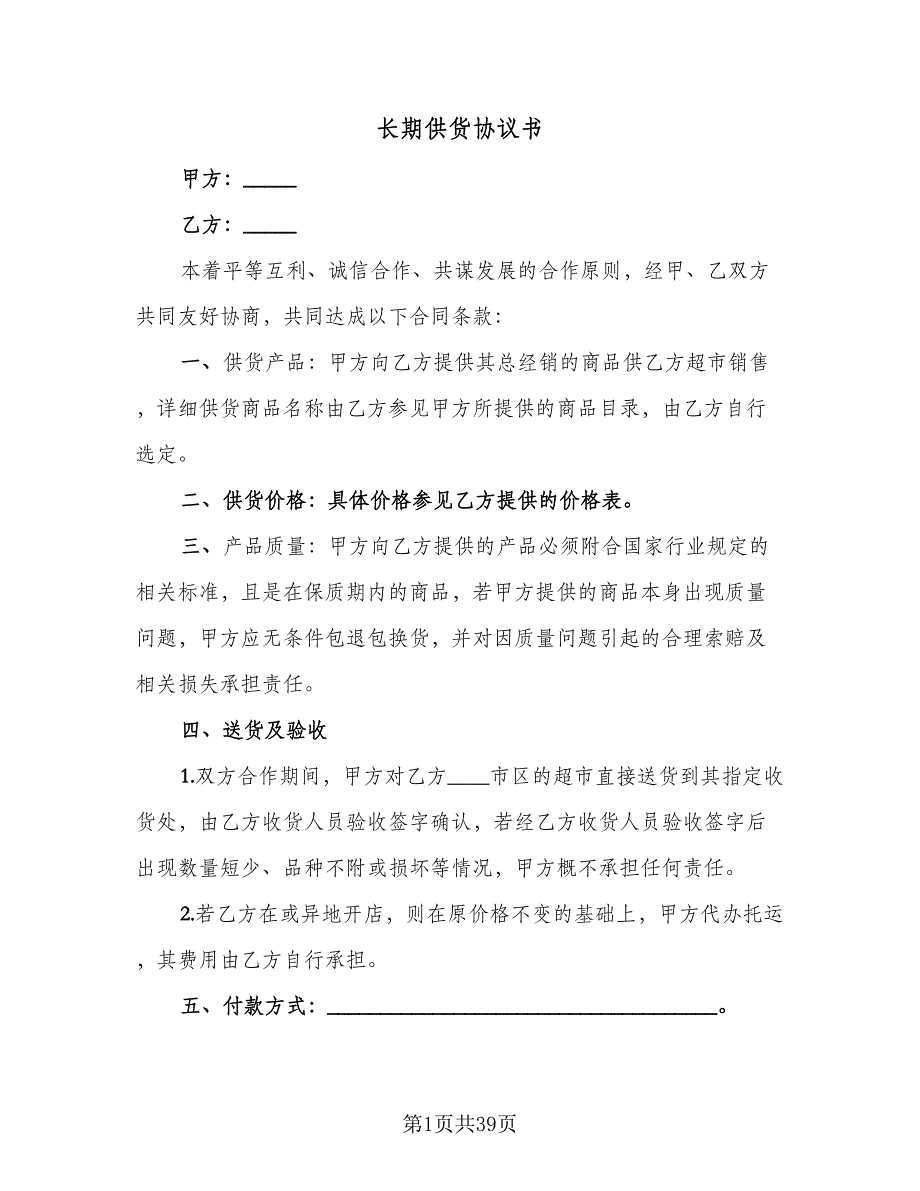 长期供货协议书
甲方：_____
乙方：_____
本着平等互利、诚信合作、共谋发展的合作原则，经甲、乙双方
共同友好协商，共同达成以下合同条款：
一、供货产品：甲方向乙方提供其总经销的商品供乙方超市销售
，详细供货商品名称由乙方参见甲方所提供的商品目录，由乙方自行
选定。
二、供货价格：具体价格参见乙方提供的价格表。
三、产品质量：甲方向乙方提供的产品必须附合国家行业规定的
相关标准，且是在保质期内的商品，若甲方提供的商品本身出现质量
问题，甲方应无条件包退包换货，并对因质量问题引起的合理索赔及
相关损失承担责任。
四、送货及验收
1.双方合作期间，甲方对乙方____市区的超市直接送货到其指定收
货处，由乙方收货人员验收签字确认，若经乙方收货人员验收签字后
出现数量短少、品种不附或损坏等情况，甲方概不承担任何责任。
2.若乙方在或异地开店，则在原价格不变的基础上，甲方代办托运
，其费用由乙方自行承担。
五、付款方式：_____________________________________。
第1页共39页